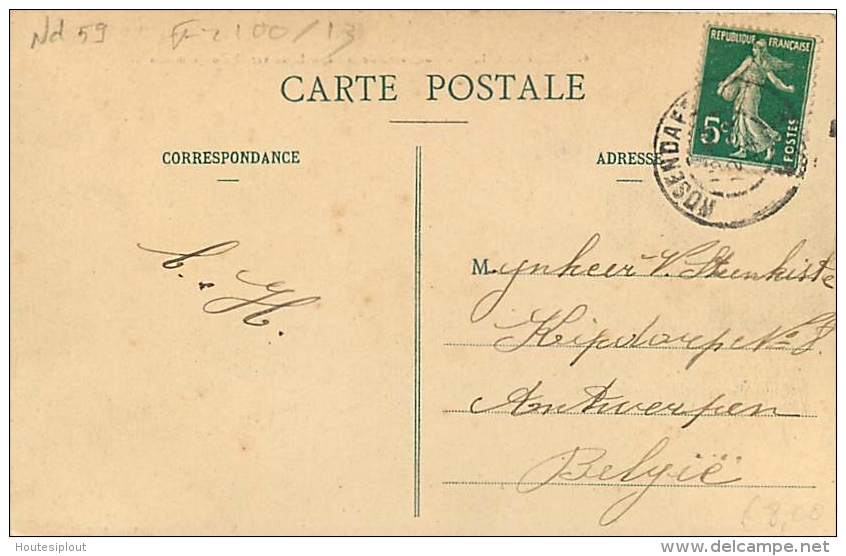 Nd 59
100/13
CARTE POSTALE
CORRESPONDANCE
ADRESSE
RÉPUBLIQUE FRANÇAISE
5c
POSTES
ROSENDAE
b. H.
Mynheer V. Steenkiste
Kipdorp No 8
Antwerpen
België
£ 8,00
Houtesiplout
delcampe.net